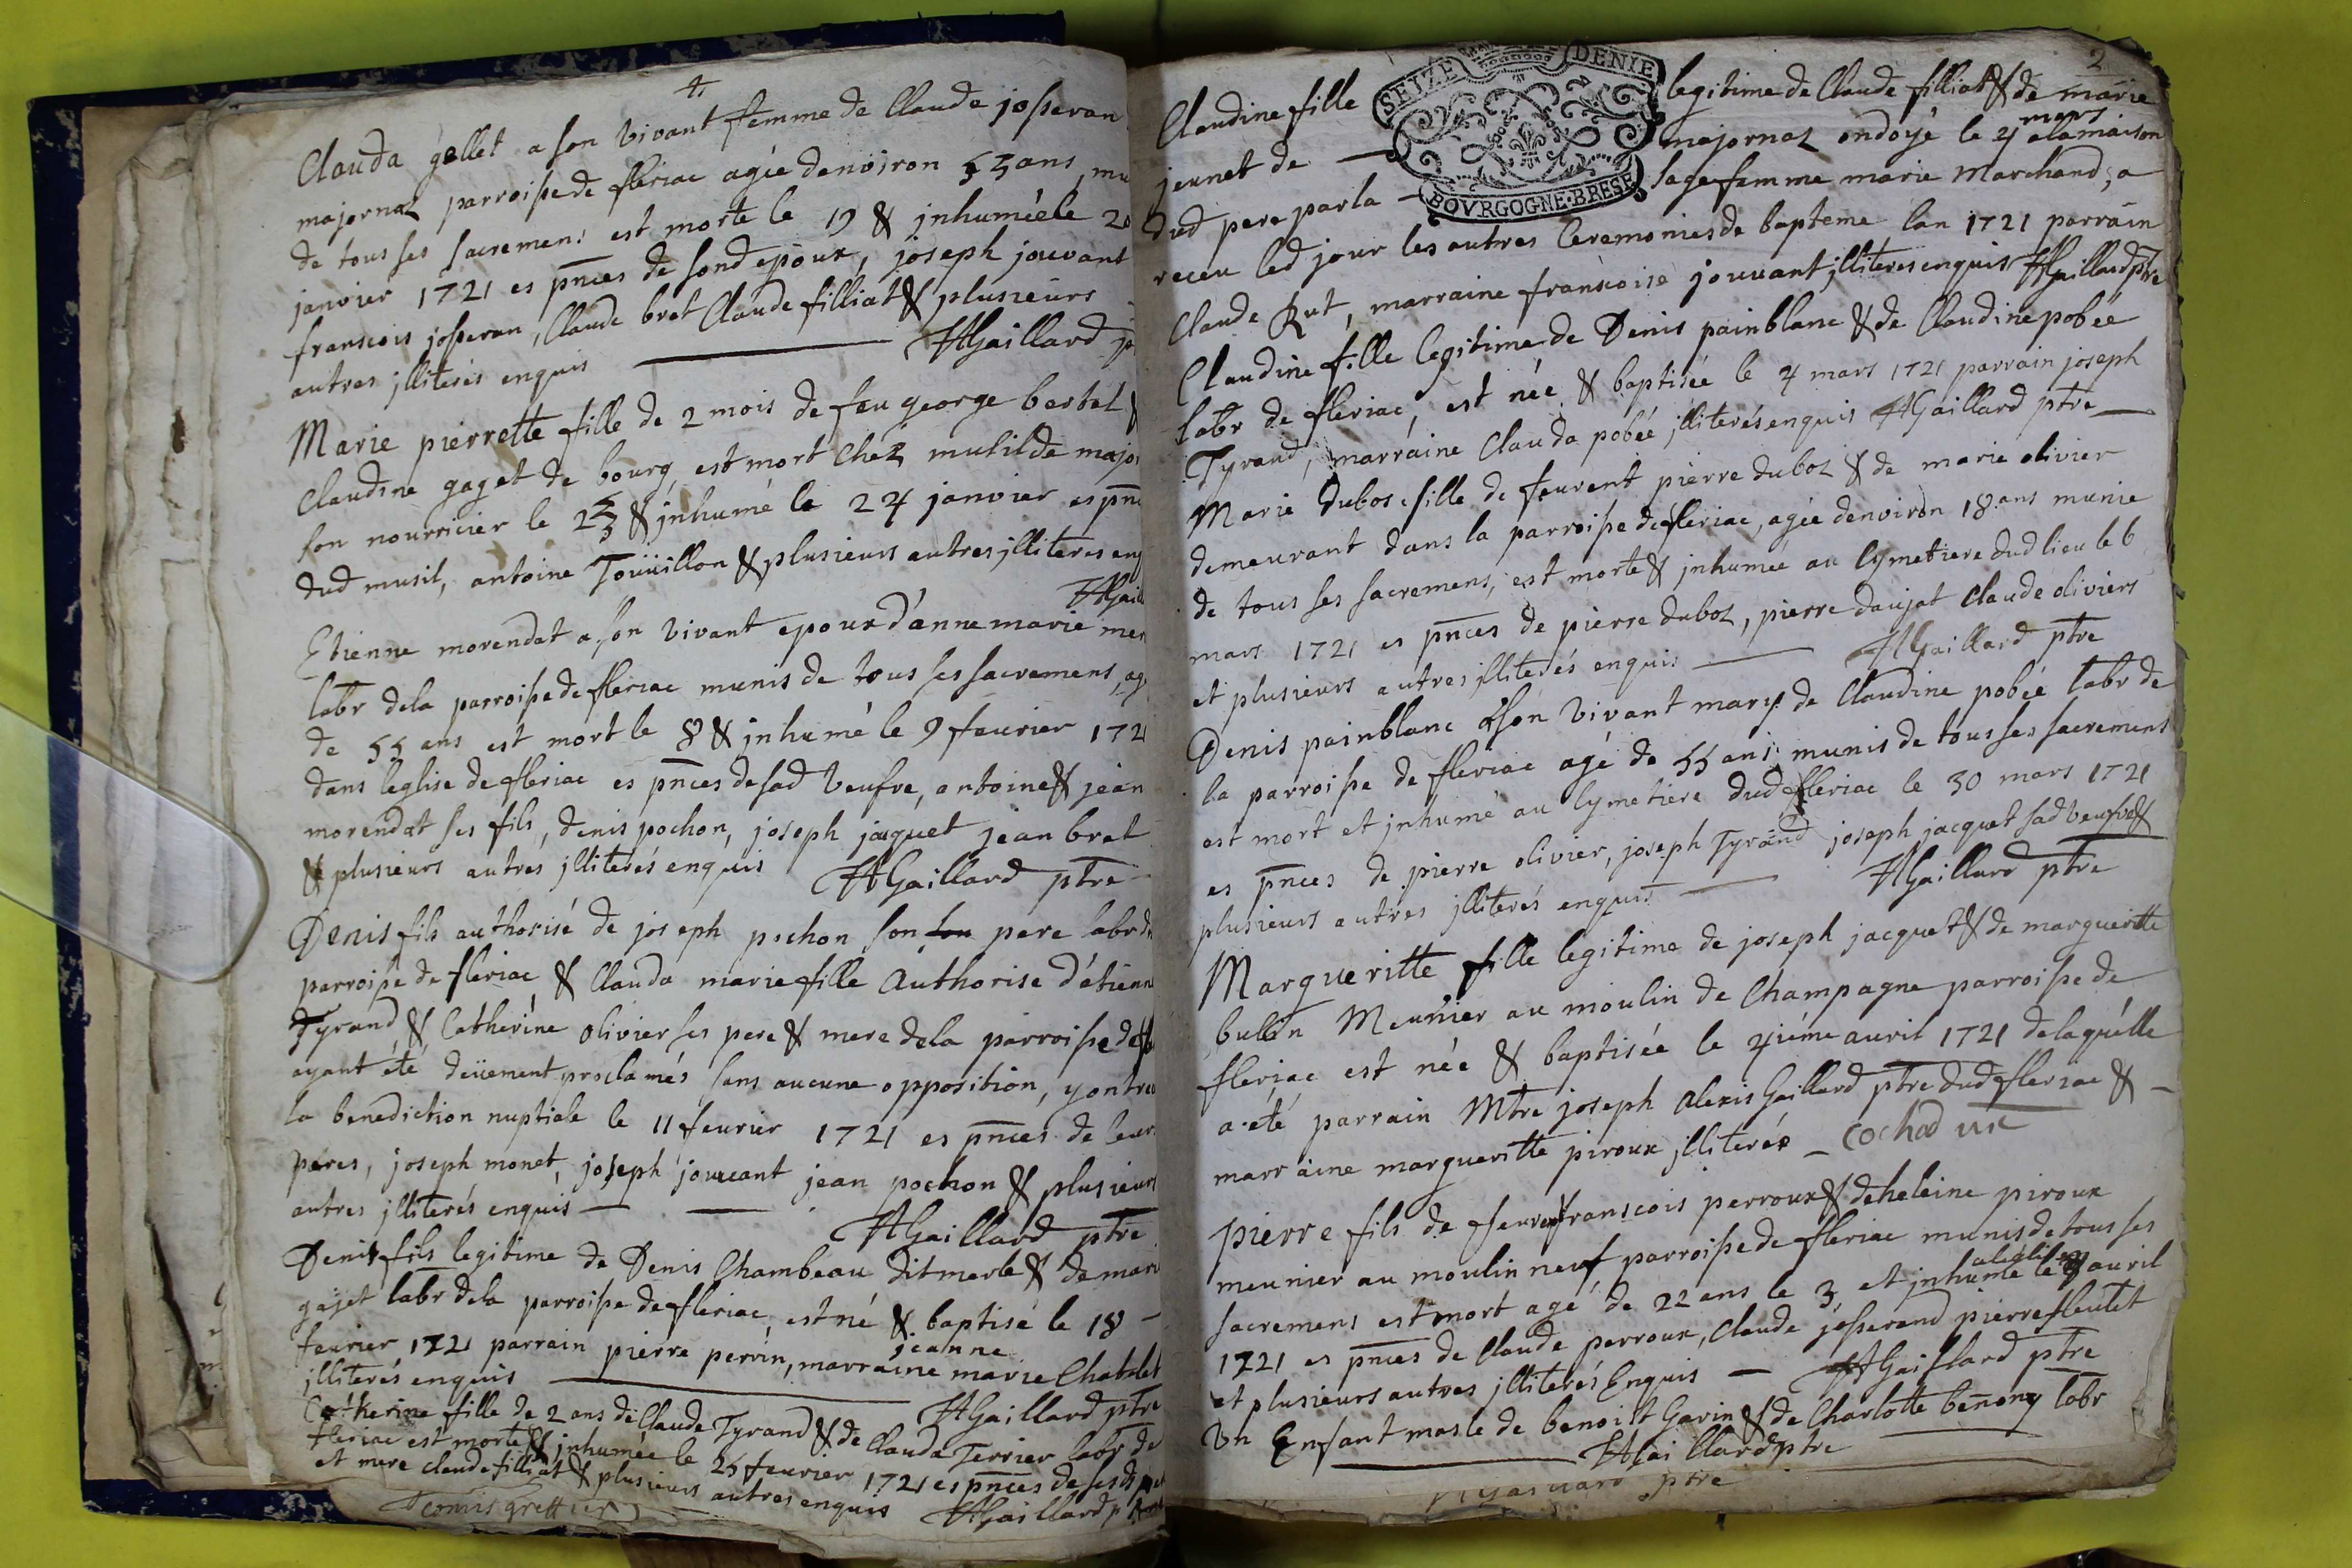 4.
Clauda gollet a son vivant femme de Claude josseran
majornaz parroisse de fleriac agée denviron 55 ans, mu
de tous ses sacremens est morte le 19 & jnhumée le 20
janvier 1721 es pnces de sond epoux, joseph jouvant
francois josseran, Claude bret Claude filliat & plusieurs
autres jlliterés enquis HGaillard p
Marie pierrette fille de 2 mois de feu george bertet &
Claudine gaget de bourg, est mort chez musil de major
son nourricier le 23 & jnhumé le 24 janvier es pnc
dud musil, antoine Toüillon & plusieurs autres jlliteres enq
HGaill
Etienne morendat a son vivant epoux d'anne marie mer
labr dela parroisse de fleriac munis de tous ses sacremens, ag
de 55 ans est mort le 8 & jnhumé le 9 feurier 172
dans leglise de fleriac es pnces de sad veufve, antoine & jean
morendat ses fils, denis pochon, joseph jaquet jean bret
& plusieurs autres jlliterés enquis HGaillard ptre
Denis fils authorisé de joseph pochon son pere labr de
parroisse de fleriac & Clauda marie fille Authorise d'étienn
Tyrand & Catherine olivier ses pere & mere dela parroisse de
ayant été deüement proclamés sans aucune opposition, y ont re
la benediction nuptiale le 11 feurier 1721 es pnces de leur
peres, joseph monet, joseph jouvant jean pochon & plusieurs
autres jlliterés enquis
HGaillard ptre
Denis fils legitime de Denis Chambeau dit merle & de mari
gajet labr dela parroisse de fleriac est né & baptisé le 18
feurier 1721 parrain pierre perrin, marraine jeanne marie Chatelet
jlliterés enquis HGaillard ptre
Catherine fille de 2 ans de Claude Tyrand & de Clauda Terrier labr de
fleriac est morte & jnhumée le 25 feurier 1721 es pnces de sesd p
et mere claude filliat & plusieurs autres enquis HGaillard p
comis greffier
2
SEIZE DENIE
BOVRGOGNE·BRESE
Claudine fille legitime de Claude filliat & de marie
jeunet de majornaz ondoyé le 4 mars a la maison
dud pere par la sage femme marie Marchand, a
receu led jour les autres Ceremonies de bapteme lan 1721 parrain
Claude Rut, marraine francoise jouvant jlliteres enquis HGaillard ptre
Claudine fille legitime de Denis painblanc & de Claudine pobée
labr de fleriac, est née & baptisée le 4 mars 1721 parrain joseph
Tyrand, marraine Clauda pobée jlliterés enquis HGaillard ptre
Marie dubos fille de feurent pierre duboz & de marie olivier
demeurant dans la parroisse de fleriac, agée denviron 18 ans munie
de tous ses sacremens, est morte & jnhumée au Cymetiere dud lieu le 6
mars 1721 es pnces de pierre duboz, pierre daujat Claude oliviers
et plusieurs autres jlliterés enquis HGaillard ptre
Denis painblanc a son vivant mary de Claudine pobée labr de
la parroisse de fleriac agé de 55 ans munis de tous ses sacremens
est mort et jnhumé au Cymetiere dud fleriac le 30 mars 1721
es pnces de pierre olivier, joseph Tyrand joseph jacquet sad veufve &
plusieurs autres jlliterés enquis HGaillard ptre
Margueritte fille legitime de joseph jacquet & de margueritte
bulin Meunier au moulin de Champagne parroisse de
fleriac est née & baptisée le 4iéme auril 1721 de laquélle
a été parrain Mtre joseph Alexis Gaillard ptre dud fleriac &
marraine margueritte piroux jlliterée Cochod
pierre fils de francois perroux & de heleine piroux
meunier au moulin neuf parroisse de fleriac munis de tous ses
sacremens est mort agé de 22 ans le 3 et jnhumé a léglise le auril
1721 es pnces de Claude perroux, Claude josserand pierre fleutet
et plusieurs autres jlliterés Enquis HGaillard ptre
Un Enfant masle de benoist Gavin & de Charlotte benony labr
HGaillard ptre
HGaillard ptre